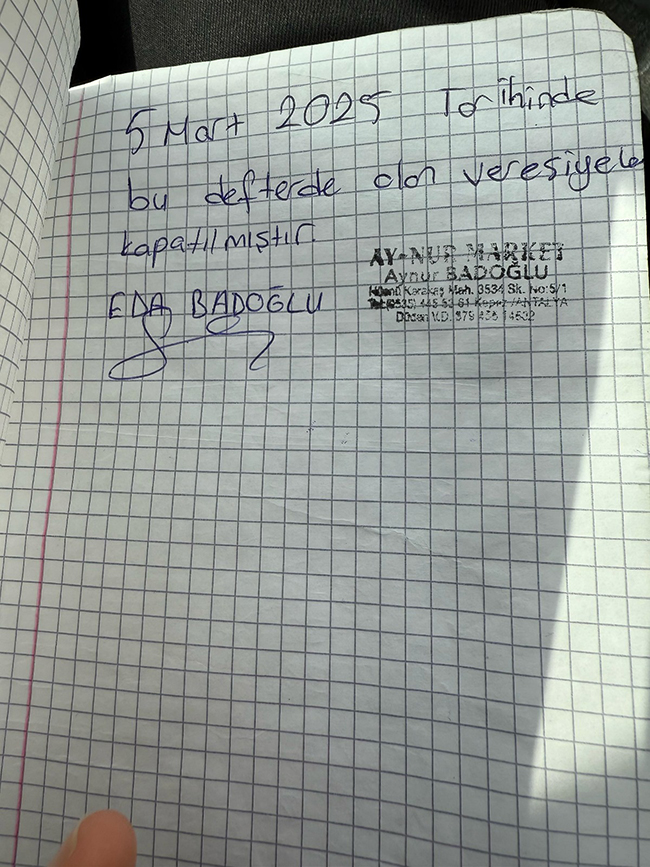 5 Mart 2025 Tarihinde
bu defterde olan veresiyele
kapatılmıştır.
EDA BADOĞLU
AY-NUR MARKET
Aynur BADOĞLU
Karakaş Mah. 3534 Sk. No:5/1
Kepez /ANTALYA
Düden V.D.